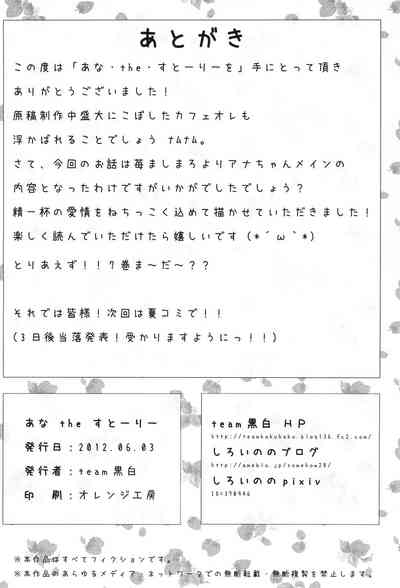 あとがき
この度は「あな・the・すとーりーを」手にとって頂き
ありがとうございました！
原稿制作中盛大にこぼしたカフェオレも
浮かばれることでしょう ナムナム。
さて、今回のお話は苺ましまろよりアナちゃんメインの
内容となったわけですがいかがでしたでしょう？
精一杯の愛情をねちっこく込めて描かせていただきました！
楽しく読んでいただけたら嬉しいです(*´ω`*)
とりあえず！！7巻ま～だ～？？
それでは皆様！次回は夏コミで！！
(3日後当落発表！受かりますようにっ！！)
あな the すとーりー
発行日：2012.06.03
発行者：team黒白
印　刷：オレンジ工房
team黒白 HP
しろいののブログ
しろいののpixiv
※本作品はすべてフィクションです。
※本作品のあらゆるメディア、ネットワークでの無断転載・無断複製を禁止します。